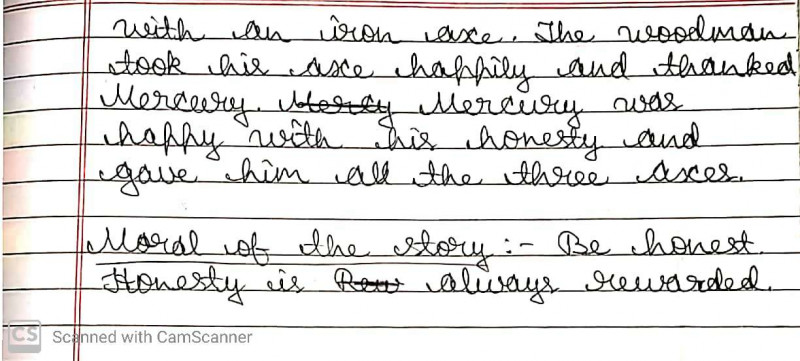 with an iron axe. The woodman
took his axe happily and thanked
Mercury. Mercy Mercury was
happy with his honesty and
gave him all the three axes.
Moral of the story :- Be honest.
Honesty is Rew always rewarded.
CS Scanned with CamScanner